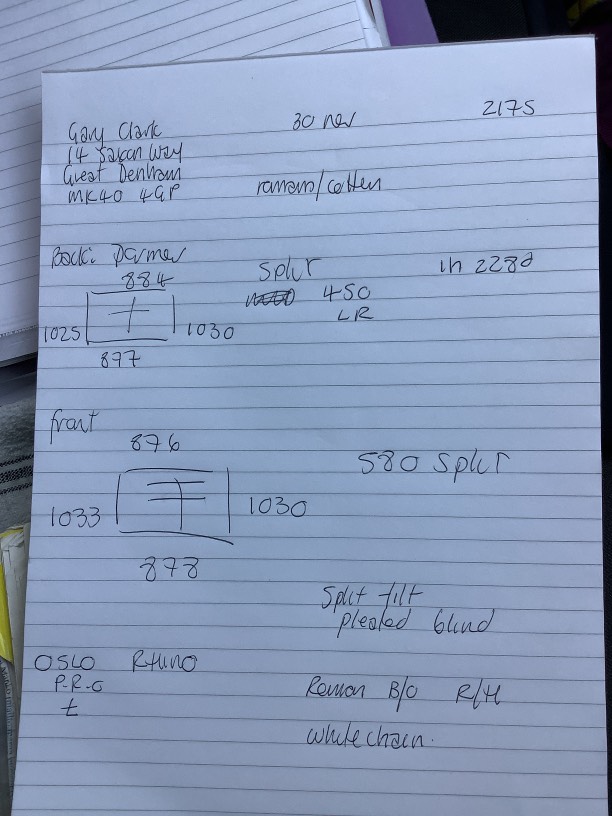 Gary Clark
30 nov
2175
14 Saxon Way
Great Denham
MK40 4GP
roman/cotten
Back:
884
split
in 228
450
LR
1025
1030
877
front
876
580 split
1033
1030
878
Split tilt
pleated blind
OSLO Rhino
P.R.G
t
Roman B/O R/H
white chain.